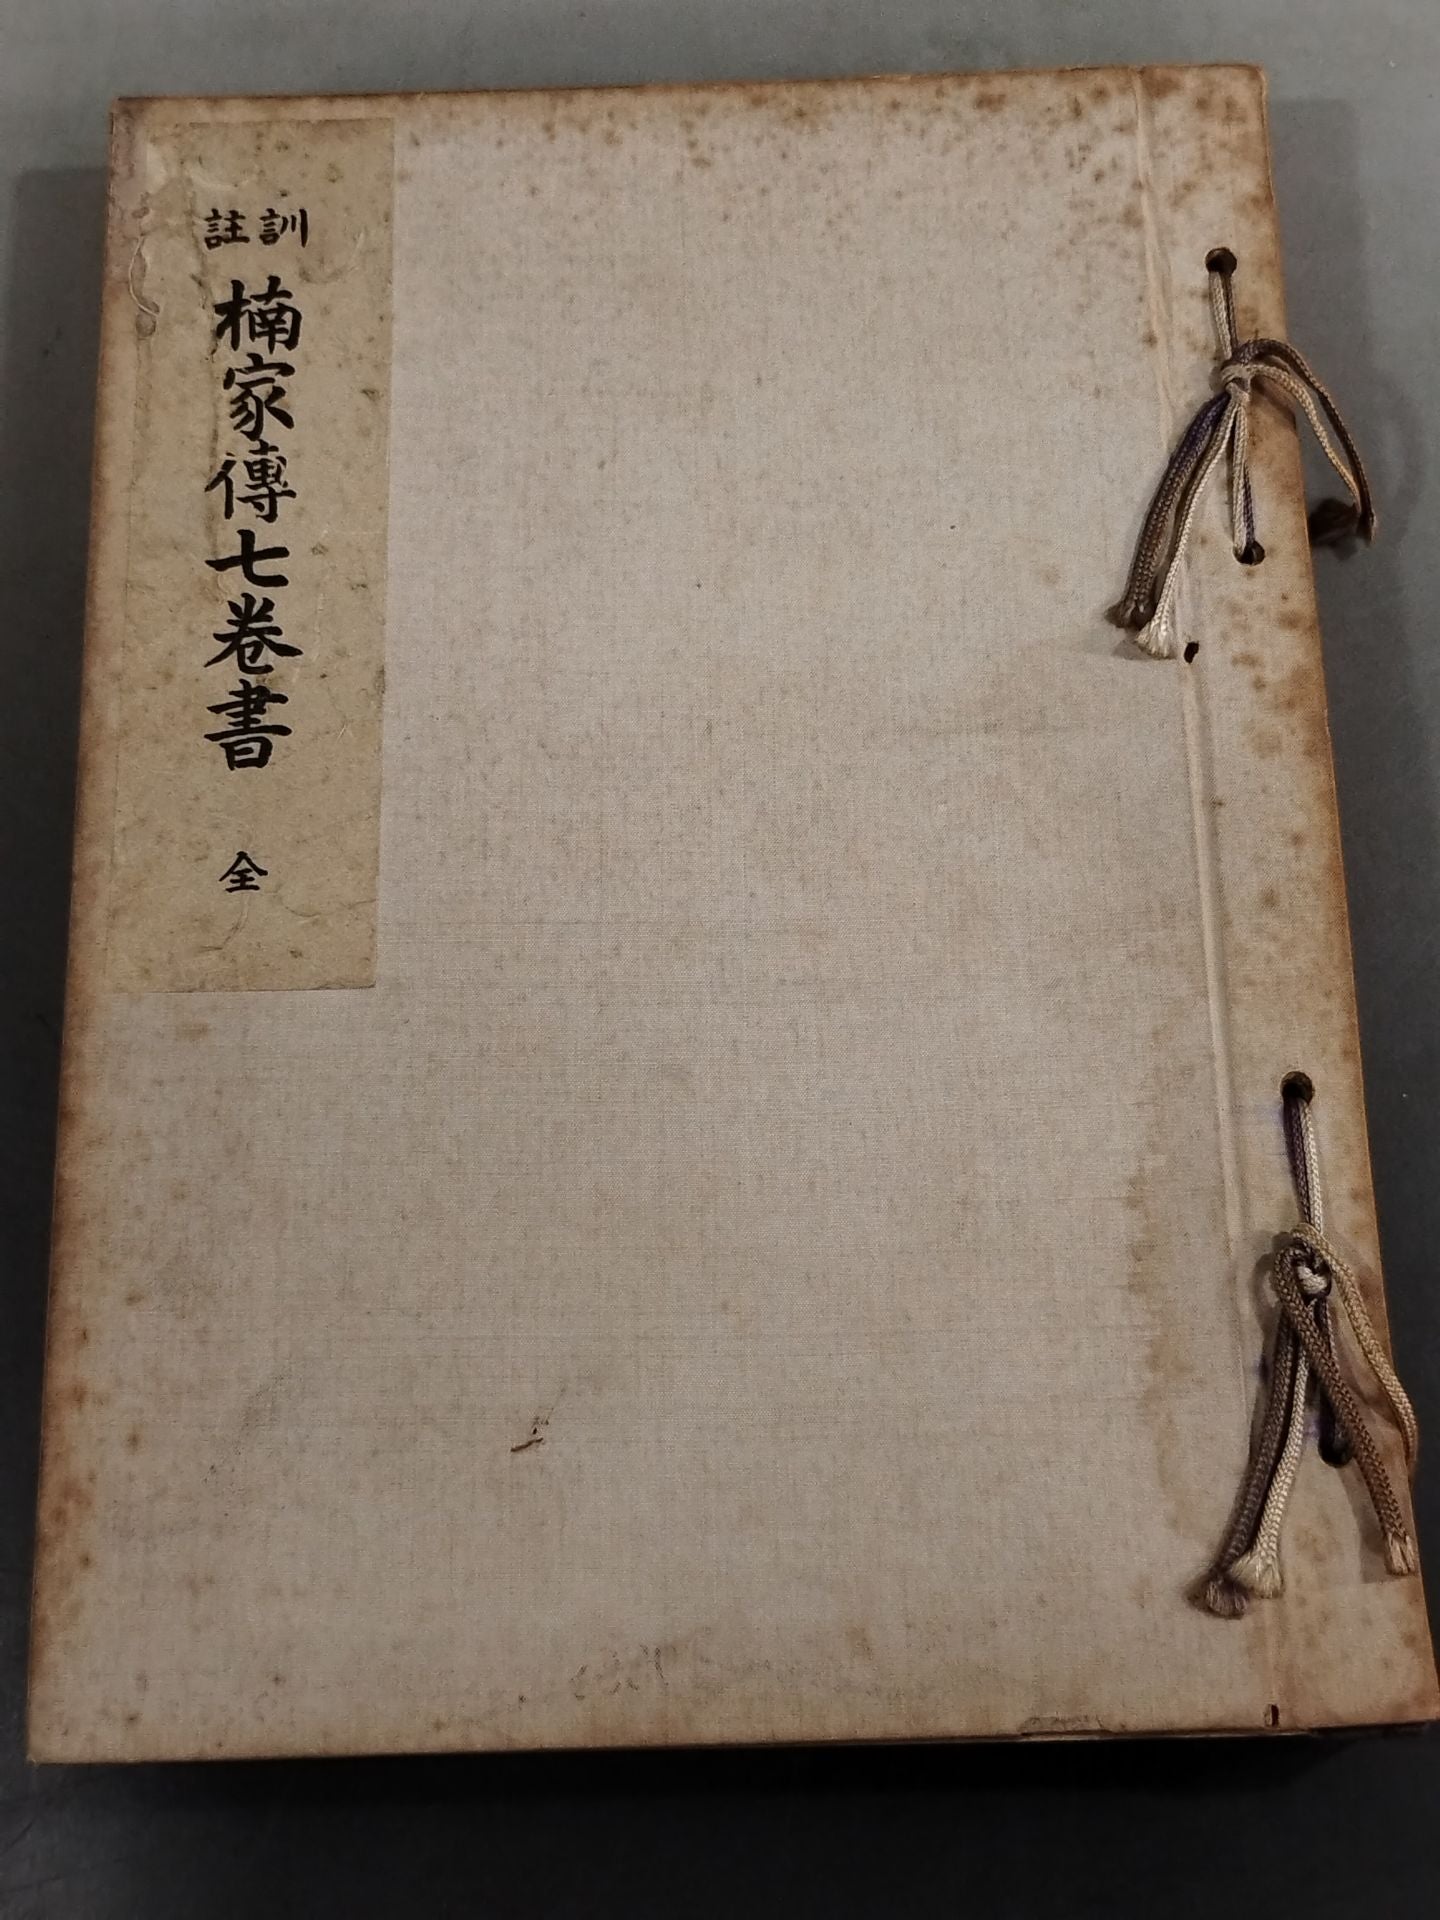 訓註
楠家傳七卷書
全